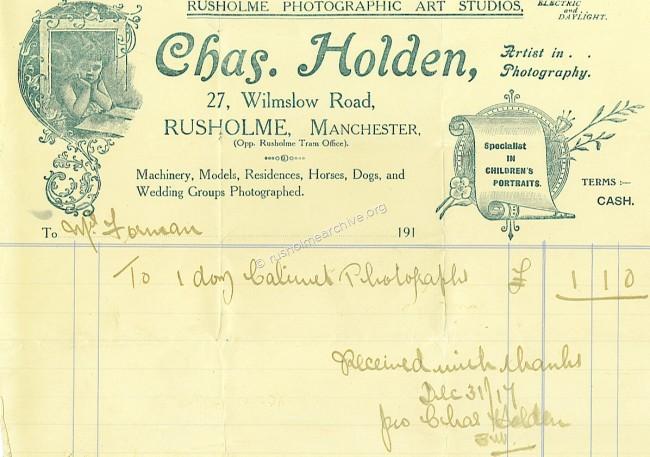 RUSHOLME PHOTOGRAPHIC ART STUDIOS,
ELECTRIC
and..
DAYLIGHT.
Chas. Holden,
Artist in . .
Photography.
27, Wilmslow Road,
RUSHOLME, MANCHESTER,
(Opp. Rusholme Tram Office).
Machinery, Models, Residences, Horses, Dogs, and
Wedding Groups Photographed.
Specialist
IN
CHILDREN'S
PORTRAITS.
TERMS :—
CASH.
To Forman 191
© rusholmearchive.org
To 1 doz Cabinet Photographs £ 1 1 0
Received with thanks
Dec 31/17
pro Chas Holden